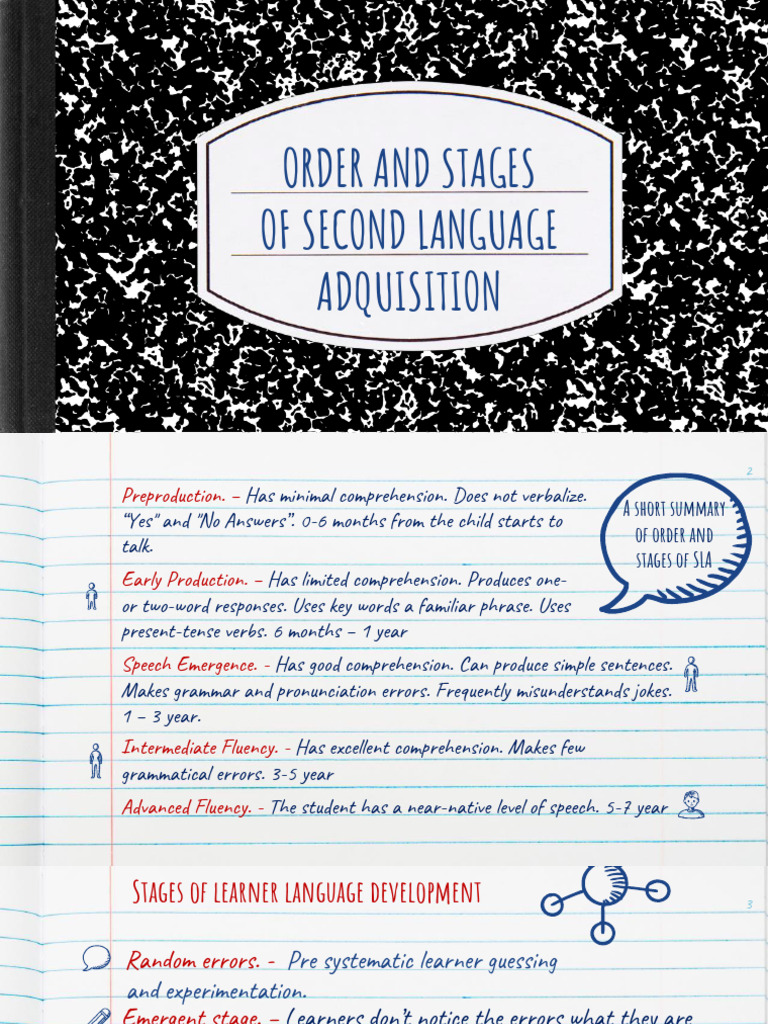 ORDER AND STAGES
OF SECOND LANGUAGE
ADQUISITION
2
Preproduction. – Has minimal comprehension. Does not verbalize.
“Yes” and “No Answers”. 0-6 months from the child starts to
talk.
A SHORT SUMMARY
OF ORDER AND
STAGES OF SLA
Early Production. – Has limited comprehension. Produces one-
or two-word responses. Uses key words a familiar phrase. Uses
present-tense verbs. 6 months – 1 year
Speech Emergence. - Has good comprehension. Can produce simple sentences.
Makes grammar and pronunciation errors. Frequently misunderstands jokes.
1 – 3 year.
Intermediate Fluency. - Has excellent comprehension. Makes few
grammatical errors. 3-5 year
Advanced Fluency. - The student has a near-native level of speech. 5-7 year
STAGES OF LEARNER LANGUAGE DEVELOPMENT
3
Random errors. - Pre systematic learner guessing
and experimentation.
Emergent stage. – Learners don’t notice the errors what they are